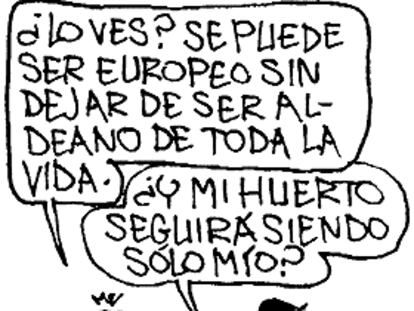 ¿LO VES? SE PUEDE
SER EUROPEO SIN
DEJAR DE SER AL-
DEANO DE TODA LA
VIDA.
¿Y MI HUERTO
SEGUIRÁ SIENDO
SÓLO MÍO?